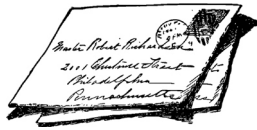 Master Robert Richardson
2001 Chestnut Street
Philadelphia
Pennsylvania